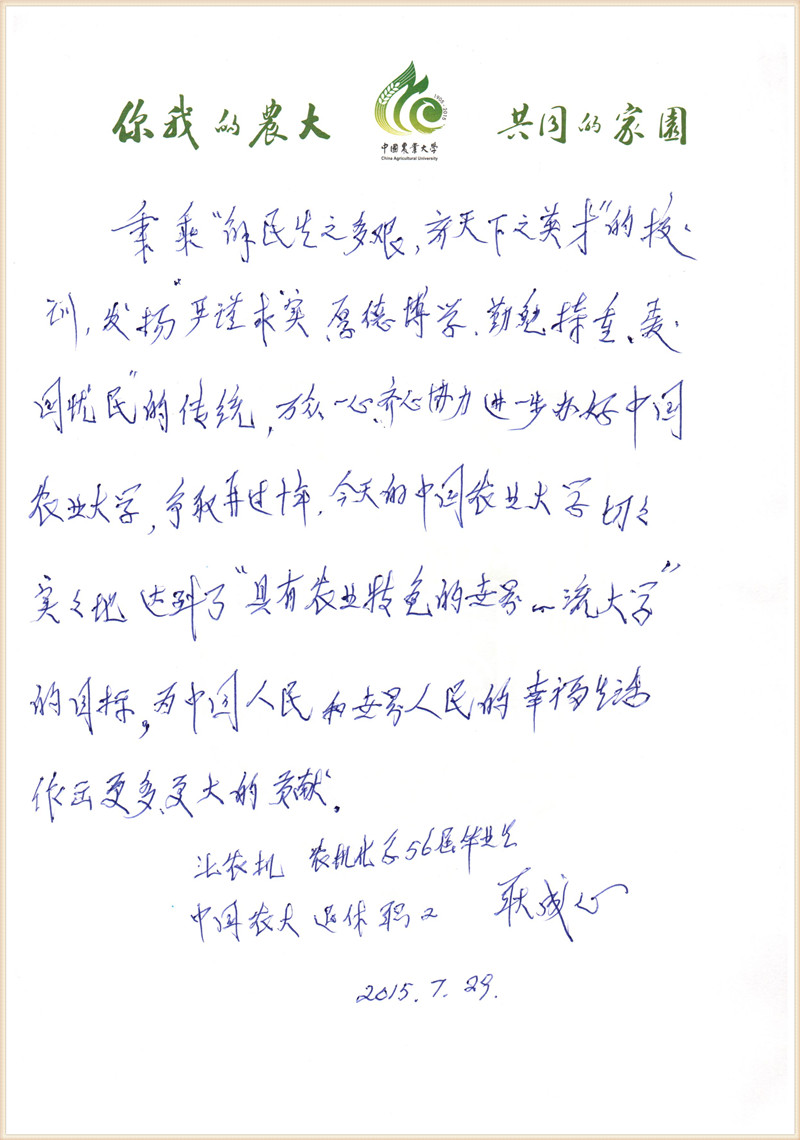 你我的農大
1905-2015
中國農業大学
China Agricultural University
共同的家園
秉乘“解民生之多艰,育天下之英才”的校
训,发扬“严谨求实、厚德博学、勤勉持重、爱
国忧民”的传统,万众一心、齐心协力进一步办好中国
农业大学,争取再过十年,今天的中国农业大学切々
实々地达到了“具有农业特色的世界一流大学”
的目标,为中国人民和世界人民的幸福生活
作出更多、更大的贡献。
农机 农机化系56届毕业生
中国农大退休职工 耿成心
2015.7.29.